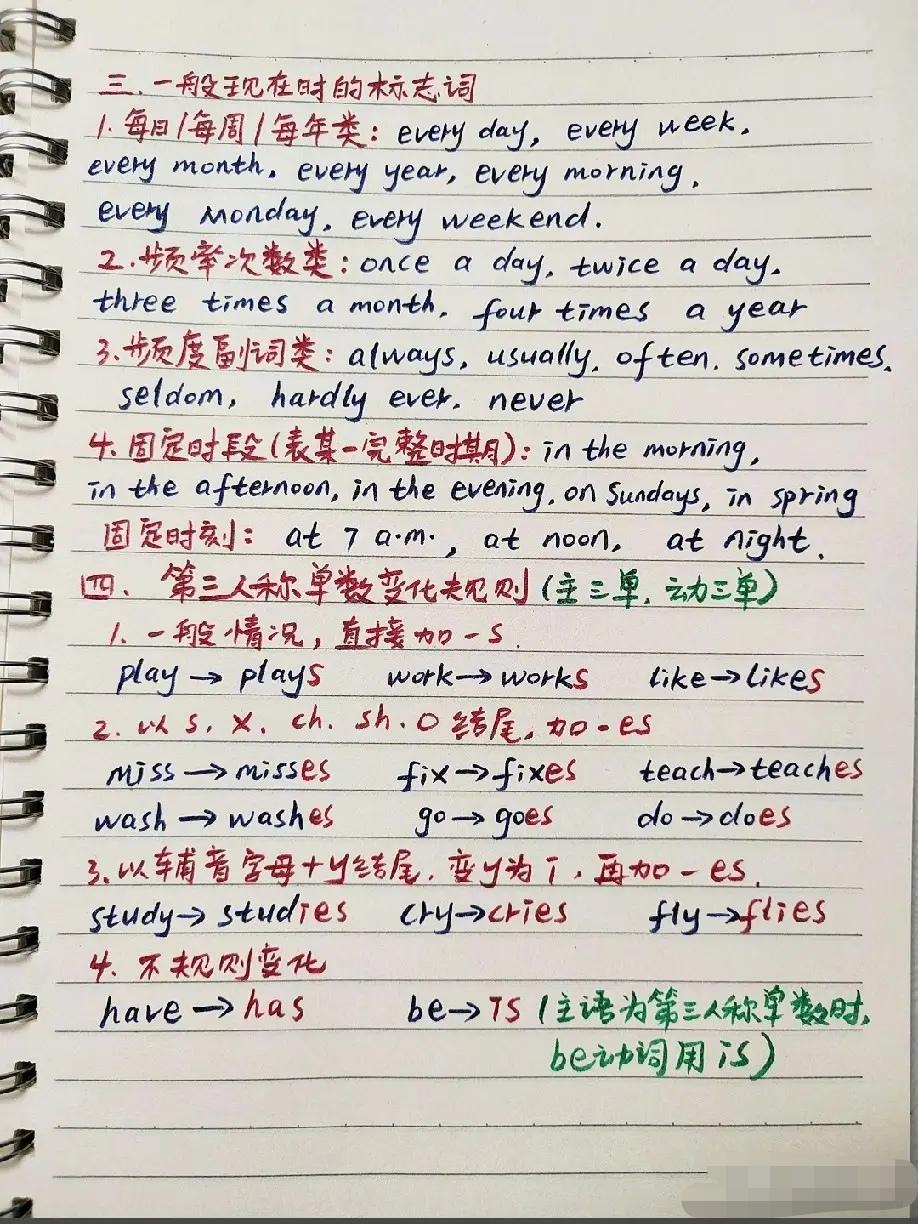 三.一般现在时的标志词
1.每日/每周/每年类: every day, every week,
every month, every year, every morning,
every Monday, every weekend.
2.频率次数类: once a day, twice a day,
three times a month, four times a year
3.频度副词类: always, usually, often, sometimes,
seldom, hardly ever, never
4.固定时段(表某一完整时期): in the morning,
in the afternoon, in the evening, on Sundays, in spring
固定时刻: at 7 a.m., at noon, at night.
四、第三人称单数变化规则(主三单,动三单)
1.一般情况,直接加-s.
play→plays work→works like→likes
2.以s, x, ch, sh, o结尾,加-es
miss→misses fix→fixes teach→teaches
wash→washes go→goes do→does
3.以辅音字母+y结尾,变y为i,再加-es.
study→studies cry→cries fly→flies
4.不规则变化
have→has be→is (主语为第三人称单数时,
be动词用is)